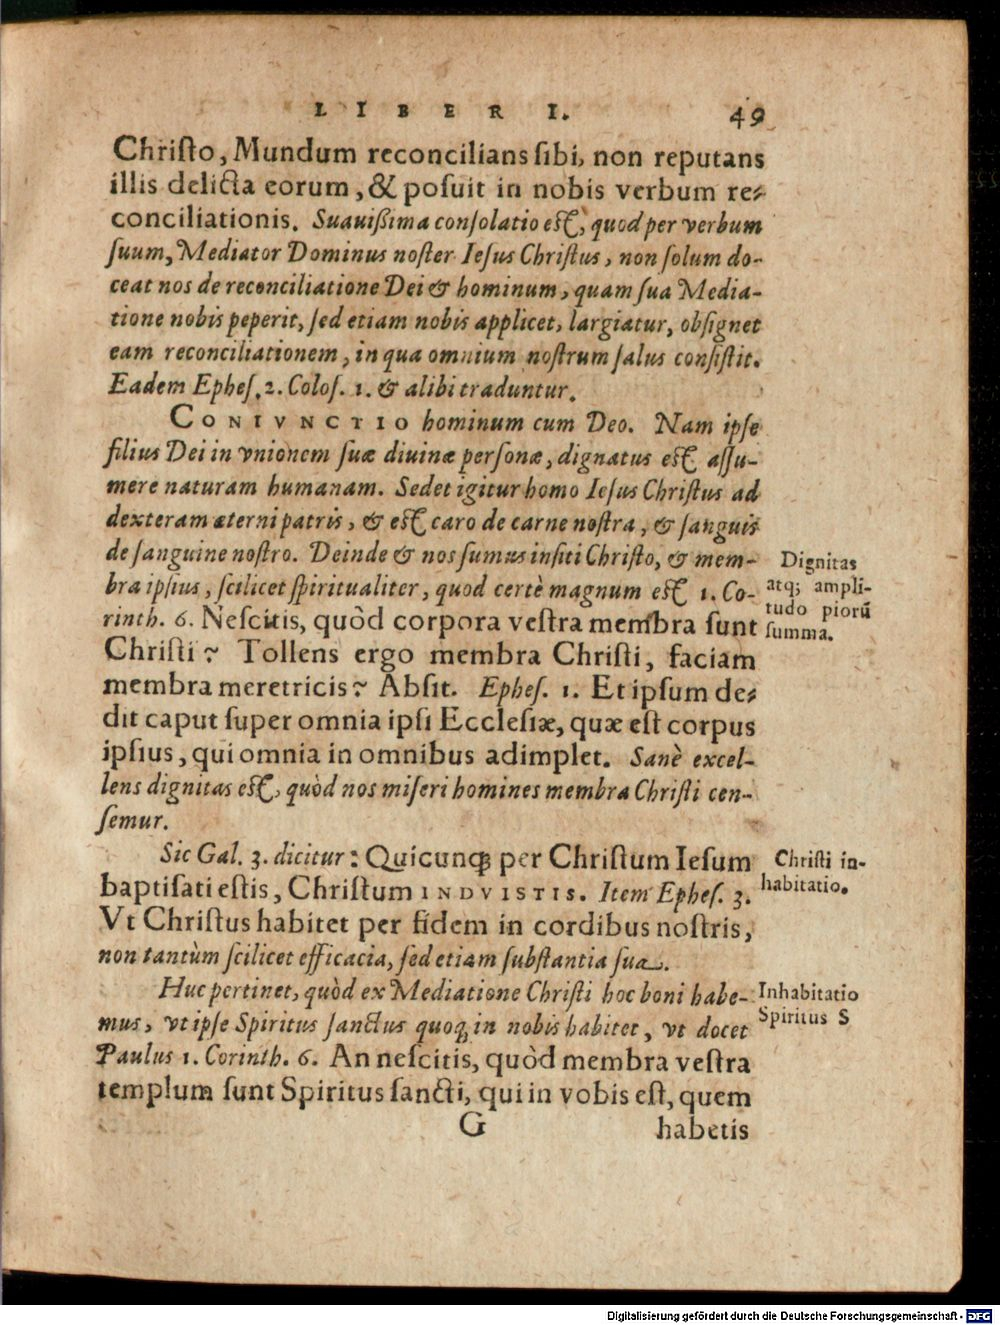 LIBER I. 49
Chriſto, Mundum reconcilians ſibi, non reputans
illis delicta eorum, & poſuit in nobis verbum re-
conciliationis. Suauiſsima conſolatio eſt, quod per verbum
ſuum, Mediator Dominus noſter Ieſus Chriſtus, non ſolum do-
ceat nos de reconciliatione Dei & hominum, quam ſua Media-
tione nobis peperit, ſed etiam nobis applicet, largiatur, obſignet
eam reconciliationem, in qua omnium noſtrum ſalus conſiſtit.
Eadem Epheſ. 2. Coloſ. 1. & alibi traduntur.
CONIVNCTIO hominum cum Deo. Nam ipſe
filius Dei in vnionem ſuæ diuinæ perſonæ, dignatus eſt aſſu-
mere naturam humanam. Sedet igitur homo Ieſus Chriſtus ad
dexteram æterni patris, & eſt caro de carne noſtra, & ſanguis
de ſanguine noſtro. Deinde & nos ſumus inſiti Chriſto, & mem-
bra ipſius, ſcilicet ſpiritualiter, quod certè magnum eſt 1. Co-
rinth. 6. Neſcitis, quòd corpora veſtra membra ſunt
Chriſti? Tollens ergo membra Chriſti, faciam
membra meretricis? Abſit. Epheſ. 1. Et ipſum de-
dit caput ſuper omnia ipſi Eccleſiæ, quæ eſt corpus
ipſius, qui omnia in omnibus adimplet. Sanè excel-
lens dignitas eſt, quòd nos miſeri homines membra Chriſti cen-
ſemur.
Dignitas
atq; ampli-
tudo piorū
ſumma.
Sic Gal. 3. dicitur: Quicunq; per Chriſtum Ieſum
baptiſati eſtis, Chriſtum INDVISTIS. Item Epheſ. 3.
Vt Chriſtus habitet per fidem in cordibus noſtris,
non tantùm ſcilicet efficacia, ſed etiam ſubſtantia ſua.
Chriſti in-
habitatio.
Huc pertinet, quòd ex Mediatione Chriſti hoc boni habe-
mus, vt ipſe Spiritus ſanctus quoq; in nobis habitet, vt docet
Paulus 1. Corinth. 6. An neſcitis, quòd membra veſtra
templum ſunt Spiritus ſancti, qui in vobis eſt, quem
Inhabitatio
Spiritus S
G habetis
Digitalisierung gefördert durch die Deutsche Forschungsgemeinschaft - DFG